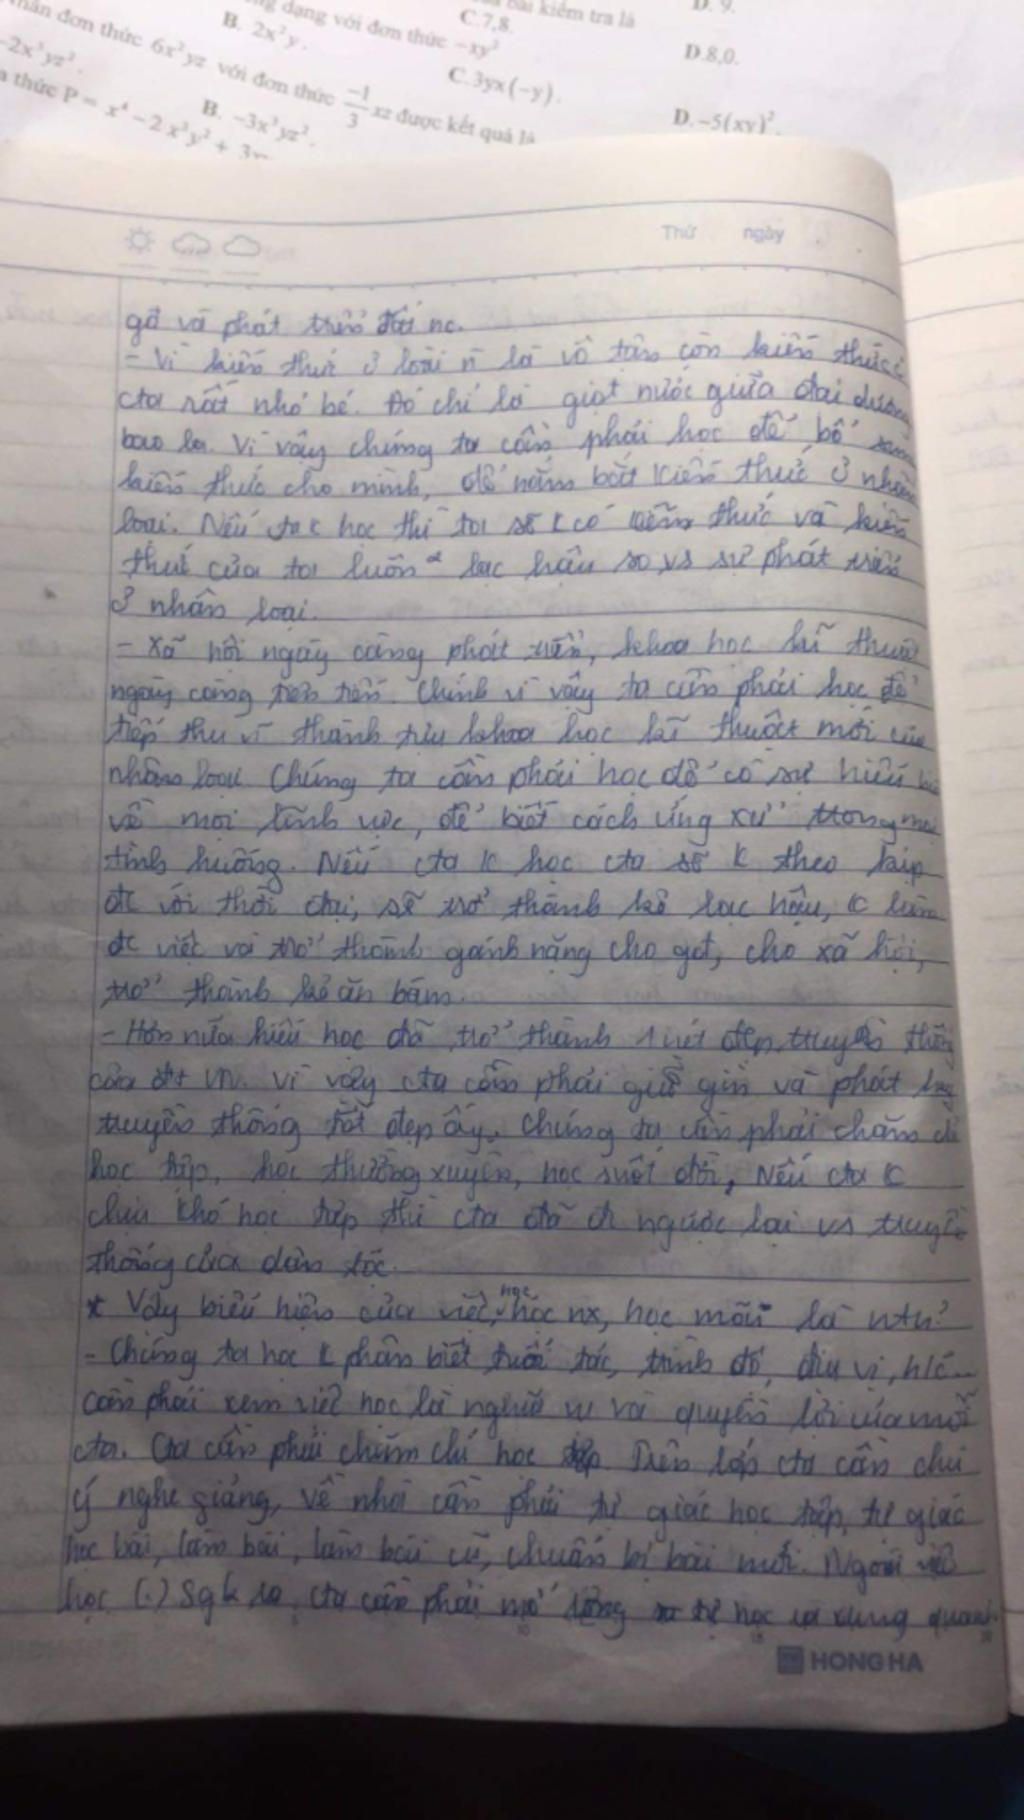 bài kiểm tra là
D. 9.
ng dạng với đơn thức -xy²
C.7,8.
D.8,0.
B. 2x²y.
C.3yx(-y).
D.-5(xy)².
nhân đơn thức 6x²yz với đơn thức -1/3 xz được kết quả là
-2x³yz².
B. -3x³yz².
a thức P = x⁴ - 2x³y² +
Thứ ngày
và phát triển đất nc.
- Vì kiến thức ở loài là vô tận còn kiến thức
cta rất nhỏ bé. Đó chỉ là giọt nước giữa đại dương
bao la. Vì vậy chúng ta cần phải học để bổ
kiến thức cho mình, để nắm bắt kiến thức ở nhân
loại. Nếu ta k học thì ta sẽ k có kiến thức và kiến
thức của ta luôn lạc hậu so vs sự phát triển
ở nhân loại.
- Xã hội ngày càng phát triển, khoa học kĩ thuật
ngày càng tiên tiến. Chính vì vậy ta cần phải học để
tiếp thu thành tựu khoa học kĩ thuật mới của
nhân loại. Chúng ta cần phải học để có sự hiểu biết
về mọi lĩnh vực, để biết cách ứng xử trong mọi
tình huống. Nếu cta k học cta sẽ k theo kịp
đc với thời đại, sẽ trở thành kẻ lạc hậu, k làm
đc việc và trở thành gánh nặng cho gđ, cho xã hội,
trở thành kẻ ăn bám.
- Hơn nữa hiếu học đã trở thành 1 nét đẹp truyền thống
của VN. Vì vậy cta cần phải giữ gìn và phát huy
truyền thống tốt đẹp ấy. Chúng ta cần phải chăm chỉ
học tập, học thường xuyên, học suốt đời, Nếu cta k
chịu khó học tập thì cta đã đi ngược lại vs truyền
thống của dân tộc.
* Vậy biểu hiện của việc, học học nx, học mãi là ntn?
- Chúng ta học k phân biệt tuổi tác, trình độ, địa vị,
cần phải xem việc học là nghĩa vụ và quyền lợi của mỗi
cta. Cta cần phải chăm chỉ học tập. Trên lớp cta cần chú
ý nghe giảng, về nhà cần phải tự giác học tập, tự giác
học bài, làm bài, làm bài cũ, chuẩn bị bài mới. Ngoài việc
học (.) Sgk ra, cta cần phải mở rộng tự học quanh
HONG HA